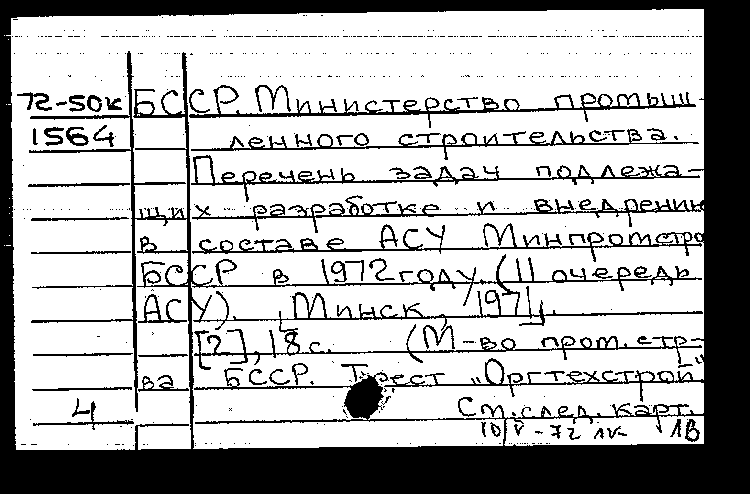 72-50к БССР. Министерство промыш-
1564 ленного строительства.
Перечень задач подлежа-
щих разработке и внедрению
в составе АСУ Минпромстро
БССР в 1972 году (II очередь
АСУ). Минск, 1971.
[2], 18 с. (М-во пром. стр-
ва БССР. Трест „Оргтехстрой"
4 См. след. карт.
10/V-72 лк 1В